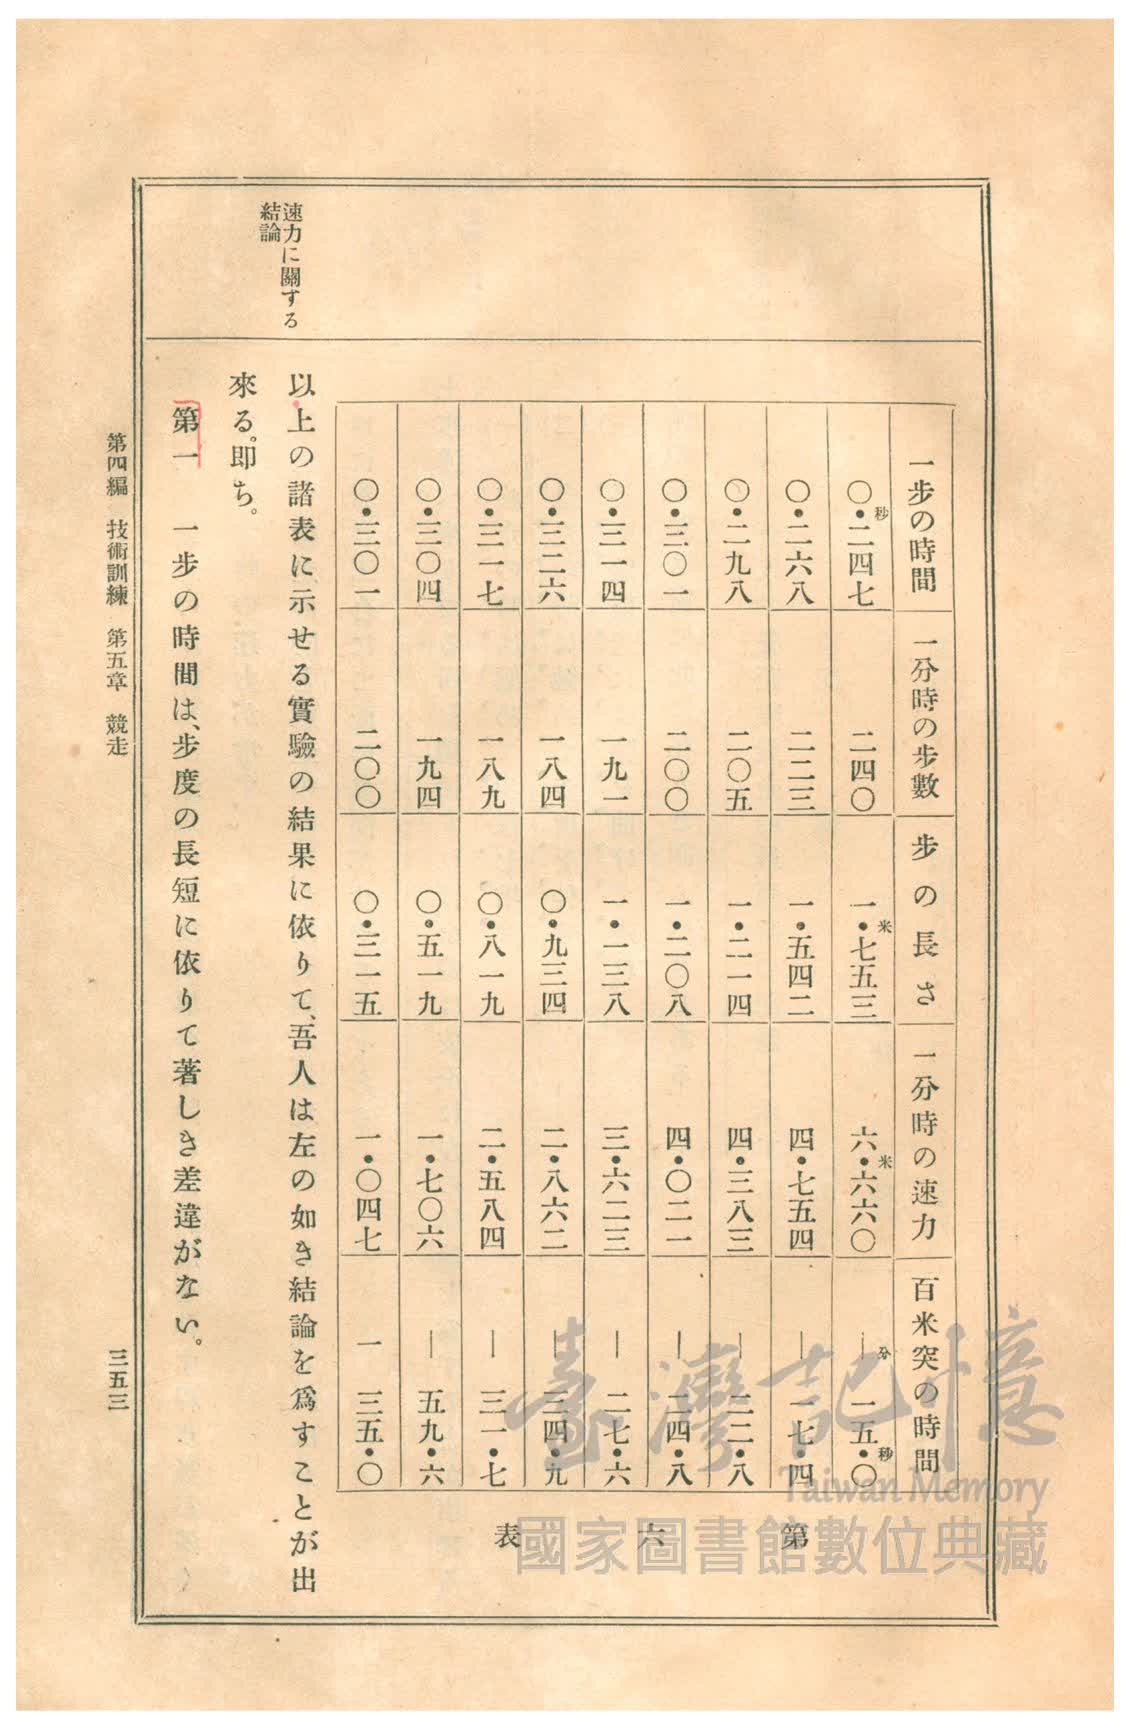 第六表
一步の時間　一分時の步數　步の長さ　一分時の速力　百米突の時間
〇・秒二四七　二四〇　一・米七五三　六・米六六〇　一分　一五・秒〇
〇・二六八　二二三　一・五四二　四・七五四　一　一七・四
〇・二九八　二〇五　一・二一四　四・三八三　一　二二・八
〇・三〇一　二〇〇　一・二〇八　四・〇二一　一　二四・八
〇・三一四　一九一　一・一三八　三・六二三　一　二七・六
〇・三二六　一八四　〇・九三四　二・八六二　一　三四・九
〇・三一七　一八九　〇・八一九　二・五八四　一　三一・七
〇・三〇四　一九四　〇・五一九　一・七〇六　一　五九・六
〇・三〇一　二〇〇　〇・三一五　一・〇四七　一　三五・〇
速力に關する
結論
以上の諸表に示せる實驗の結果に依りて、吾人は左の如き結論を爲すことが出
來る。卽ち。
第一　一步の時間は、步度の長短に依りて著しき差違がない。
第四編　技術訓練　第五章　競走
三五三
臺灣記憶
Taiwan Memory
國家圖書館數位典藏